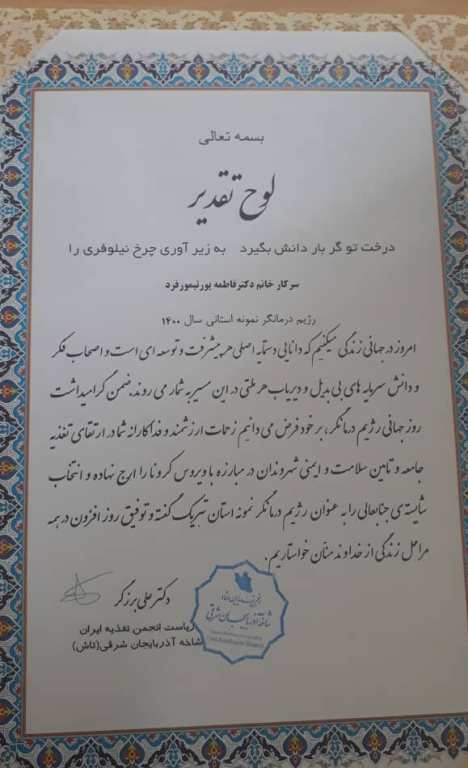 بسمه تعالی
لوح تقدیر
درخت تو گر بار دانش بگیرد به زیر آوری چرخ نیلوفری را
سرکار خانم دکتر فاطمه پورتیمورفرد
رژیم درمانگر نمونه استانی سال ۱۴۰۰
امروز در جهانی زندگی میکنیم که دانایی دستمایه اصلی هر پیشرفت و توسعه ای است و اصحاب فکر
و دانش سرمایه های بی بدیل و دیریاب هر ملتی در این مسیر به شمار می روند. ضمن گرامیداشت
روز جهانی رژیم درمانگر، بر خود فرض می دانیم زحمات ارزشمند و فداکارانه شما در ارتقای تغذیه
جامعه و تامین سلامت و ایمنی شهروندان در مبارزه با ویروس کرونا را ارج نهاده و انتخاب
شایسته ی جنابعالی را به عنوان رژیم درمانگر نمونه استان تبریک گفته و توفیق روز افزون در همه
مراحل زندگی از خداوند منان خواستاریم.
دکتر علی برزگر
ریاست انجمن تغذیه ایران
شاخه آذربایجان شرقی(تاش)
شاخه آذربایجان شرقی